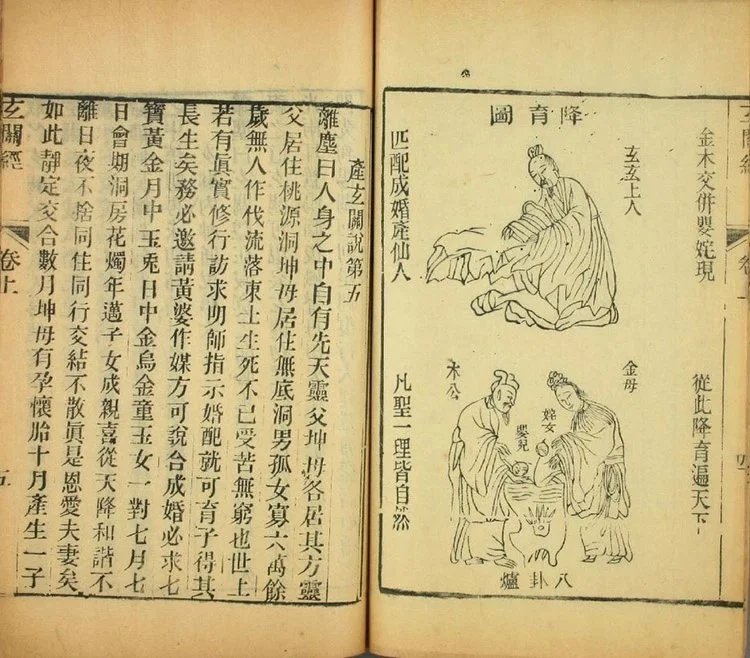 降育圖
金木交併嬰姹現
從此降育遍天下
玄玄上人
匹配成婚產仙人
凡聖一理皆自然
金母
姹女
嬰兒
木公
八卦爐
產玄關說第五
離塵曰人身之中自有先天靈父坤母各居其方靈
父居住桃源洞坤母居住無底洞男孤女寡六萬餘
歲無人作伐流落東土生死不已受苦無窮也世上
若有眞實修行訪求明師指示婚配就可育子得其
長生矣務必邀請黃婆作媒方可說合成婚必求七
寶黃金月中玉兎日中金烏金童玉女一對七月七
日會期洞房花燭年邁子女成親喜從天降和諧不
離日夜不捨同住同行交結不散眞是恩愛夫妻矣
如此靜定交合數月坤母有孕懷胎十月產生一子
玄關經
卷上
五